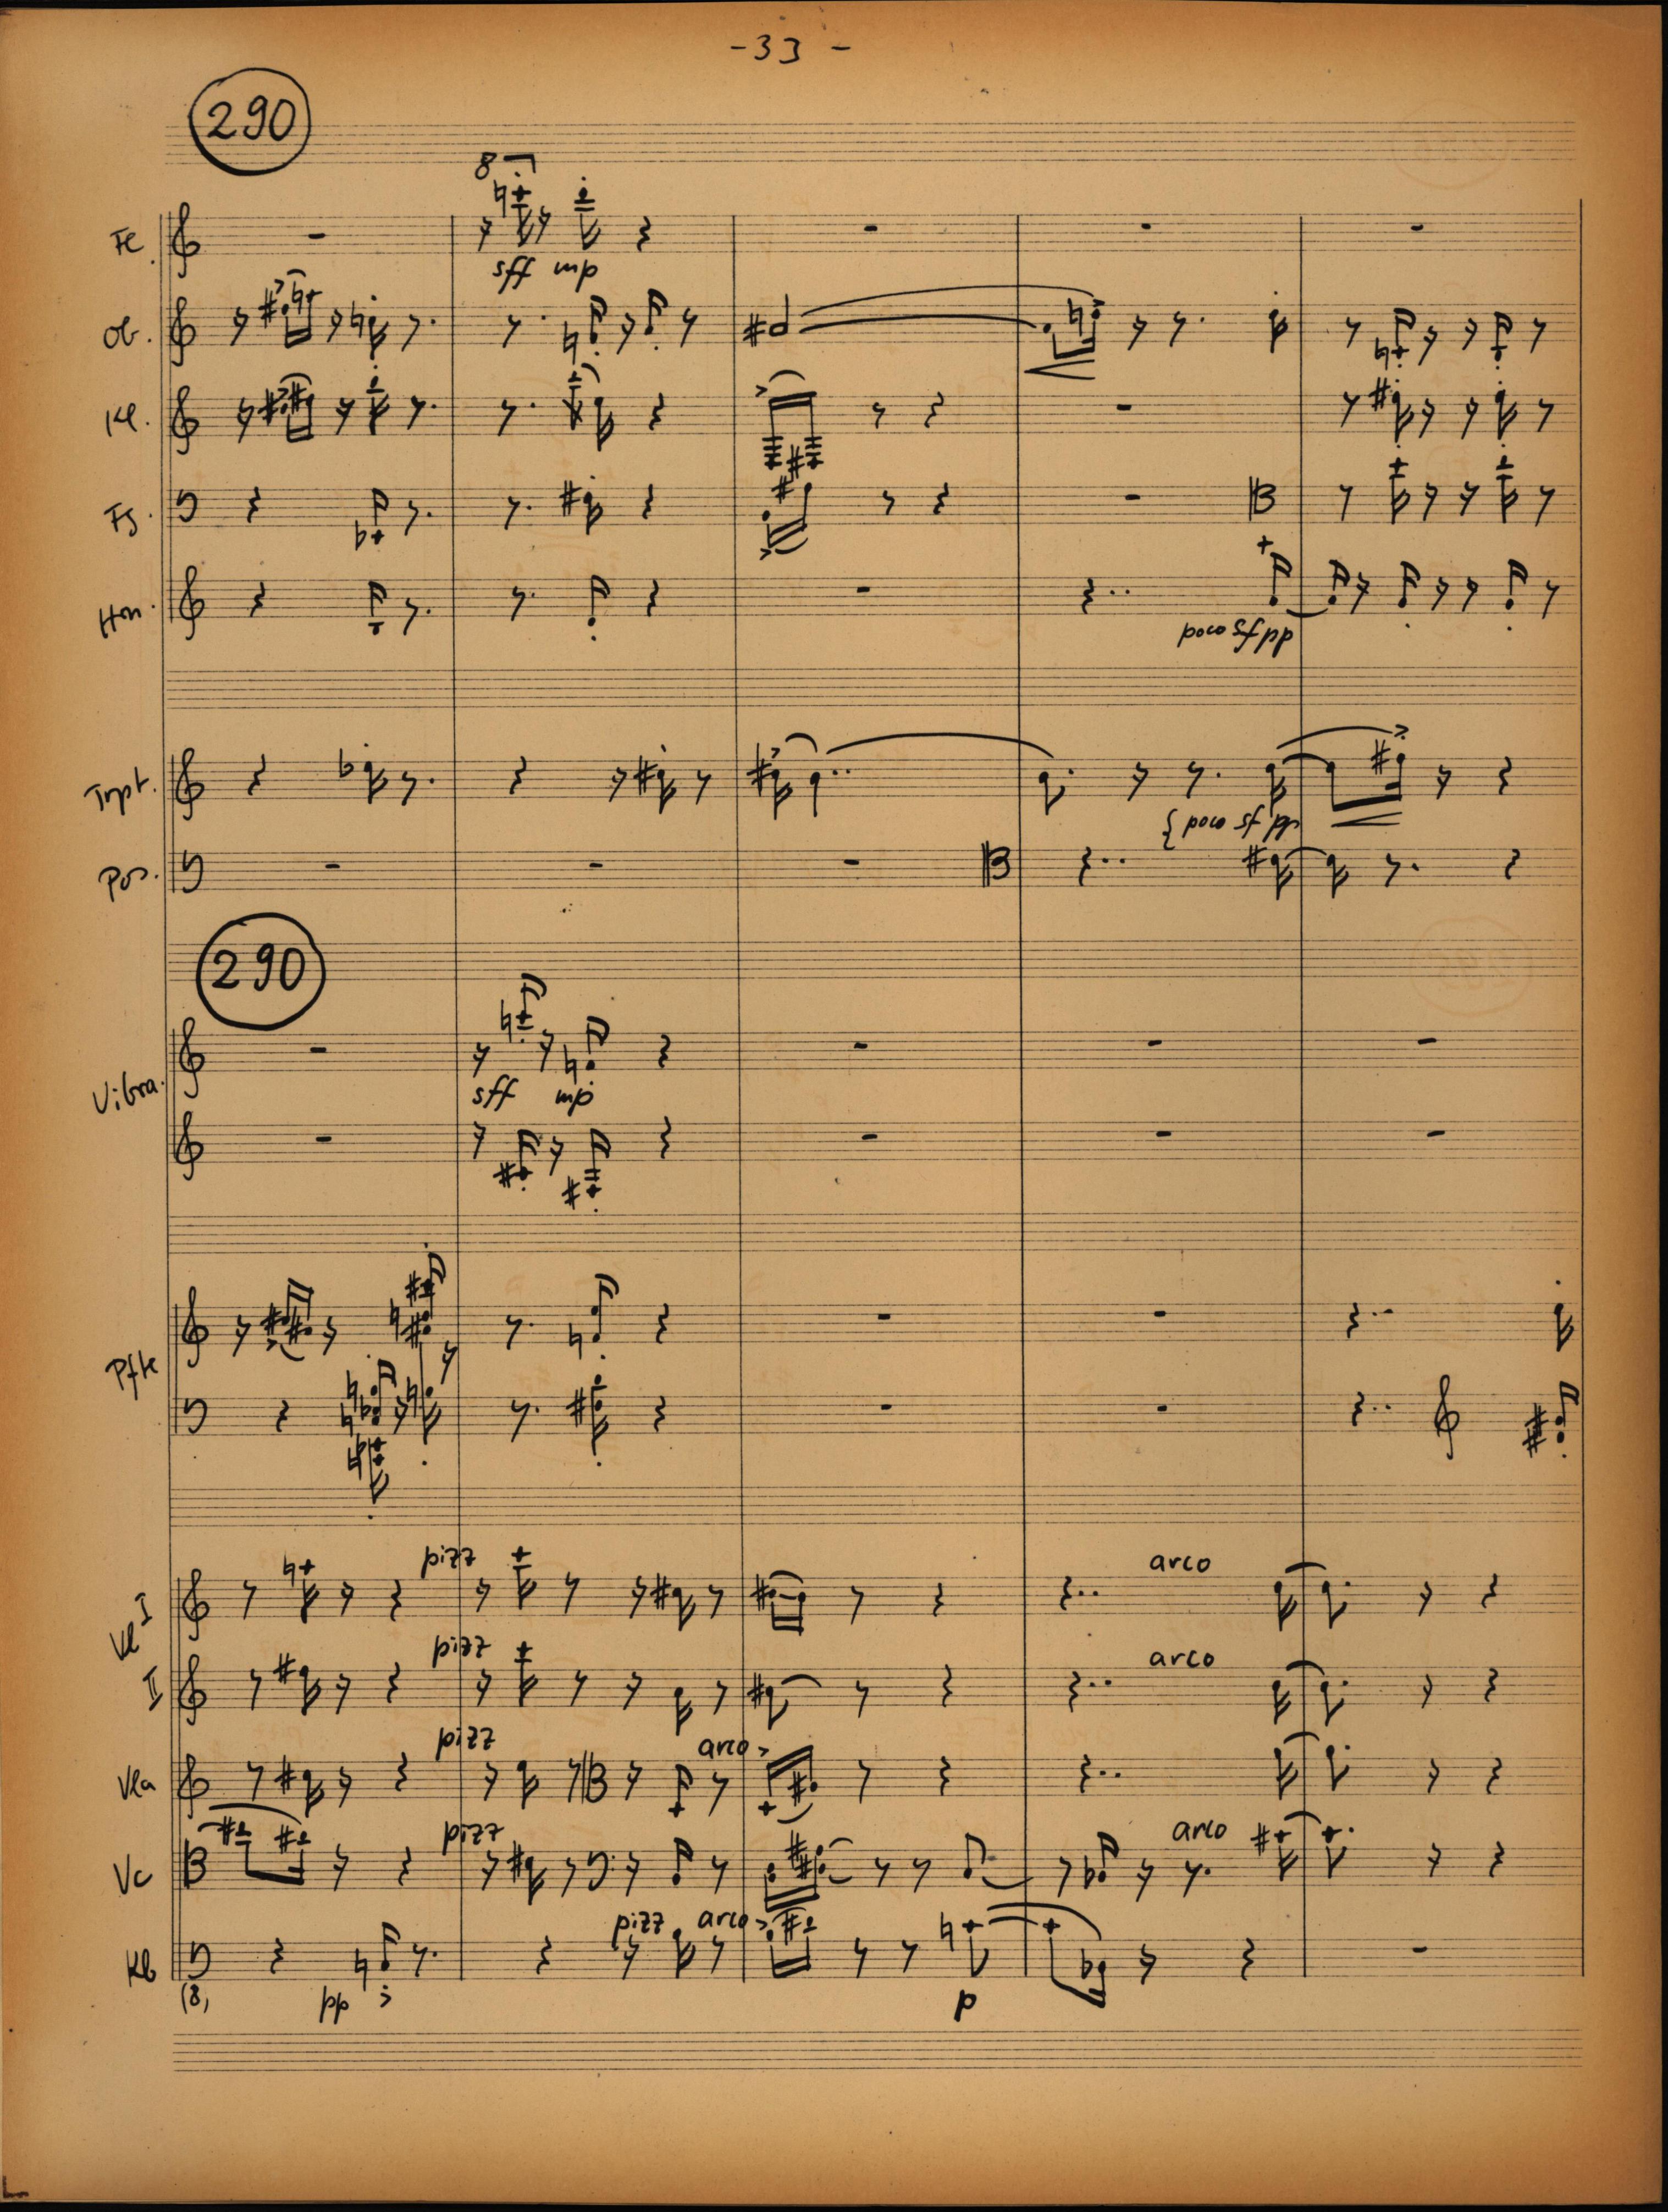 -33-
290
8
Fl.
sff mp
Ob.
Kl.
Fg.
Hrn.
poco sf pp
Trpt.
poco sf pp
Pos.
290
Vibra.
sff mp
Pfte
pizz
arco
Vl I
pizz
arco
II
pizz
arco
Vla
pizz
arco
Vc
pizz arco
Kb
(8)
pp
p